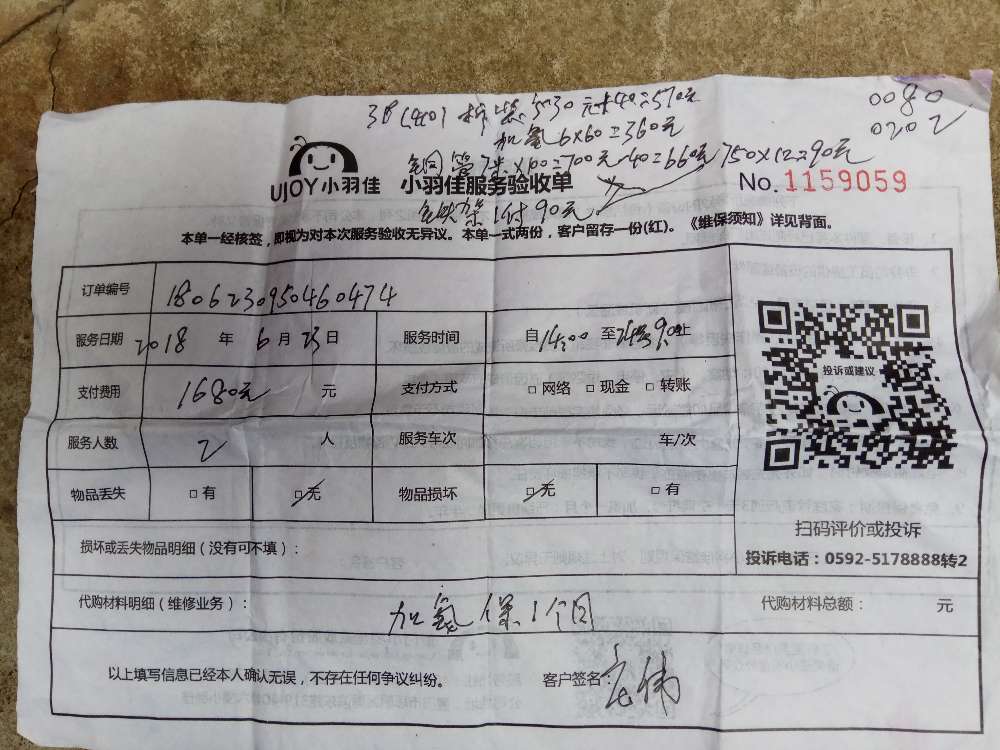 3P(挂) 拆装 530元+40=570元
0080
0202
加氟6x60=360元
铜管7米x100=700元-40=660元
UJOY小羽佳 小羽佳服务验收单
No.1159059
铁架1付90元
本单一经核签,即视为对本次服务验收无异议。本单一式两份,客户留存一份(红)。《维保须知》详见背面。
订单编号 1806230950460474
服务日期 2018 年 6 月 23 日 服务时间 自14:00 至 止
支付费用 1680元 元 支付方式 □网络 □现金 □转账
服务人数 2 人 服务车次 车/次
物品丢失 □有 □无 物品损坏 □无 □有
投诉或建议
扫码评价或投诉
投诉电话:0592-5178888转2
损坏或丢失物品明细(没有可不填):
代购材料明细(维修业务): 加氟保1个月 代购材料总额: 元
以上填写信息已经本人确认无误,不存在任何争议纠纷。 客户签名: